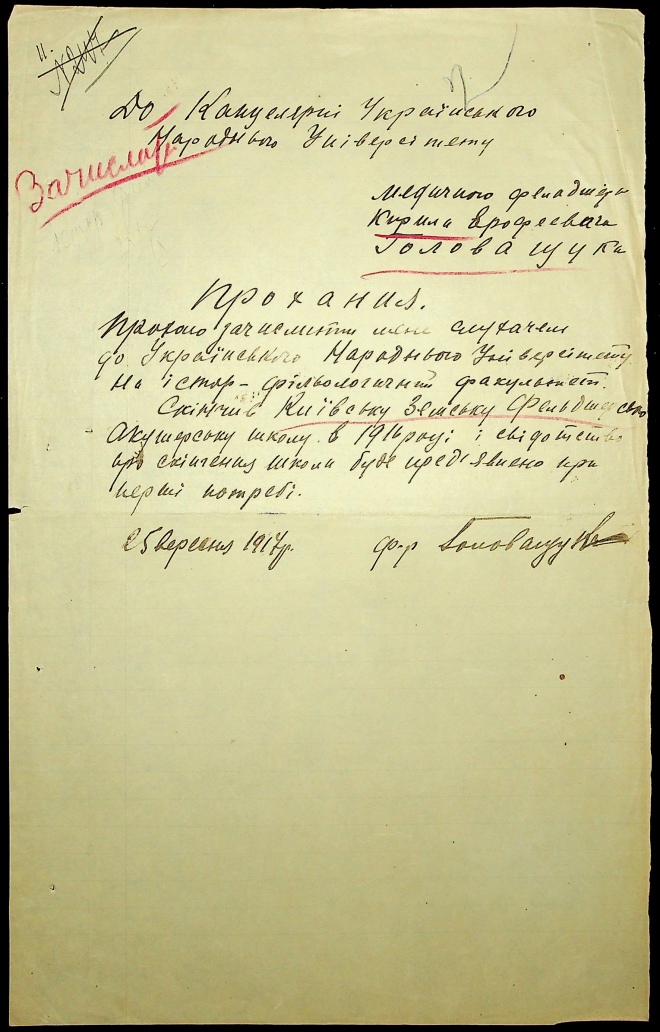 До Канцелярії Українського
Народнього Університету
Зачислить
медичного фельдшера
Кирила Ерофеевича
Головащука
Прохання.
Прохаю зачислити мене слухачем
до Українського Народнього Університету
на істор-фільологичний факультет.
Скінчив Київську Земську Фельдшерсько
Акушерську школу в 1916 році і свідотство
про скінчення школи буде предʼявлено при
перші потребі.
25 вересня 1917 р.
ф-р Головащук